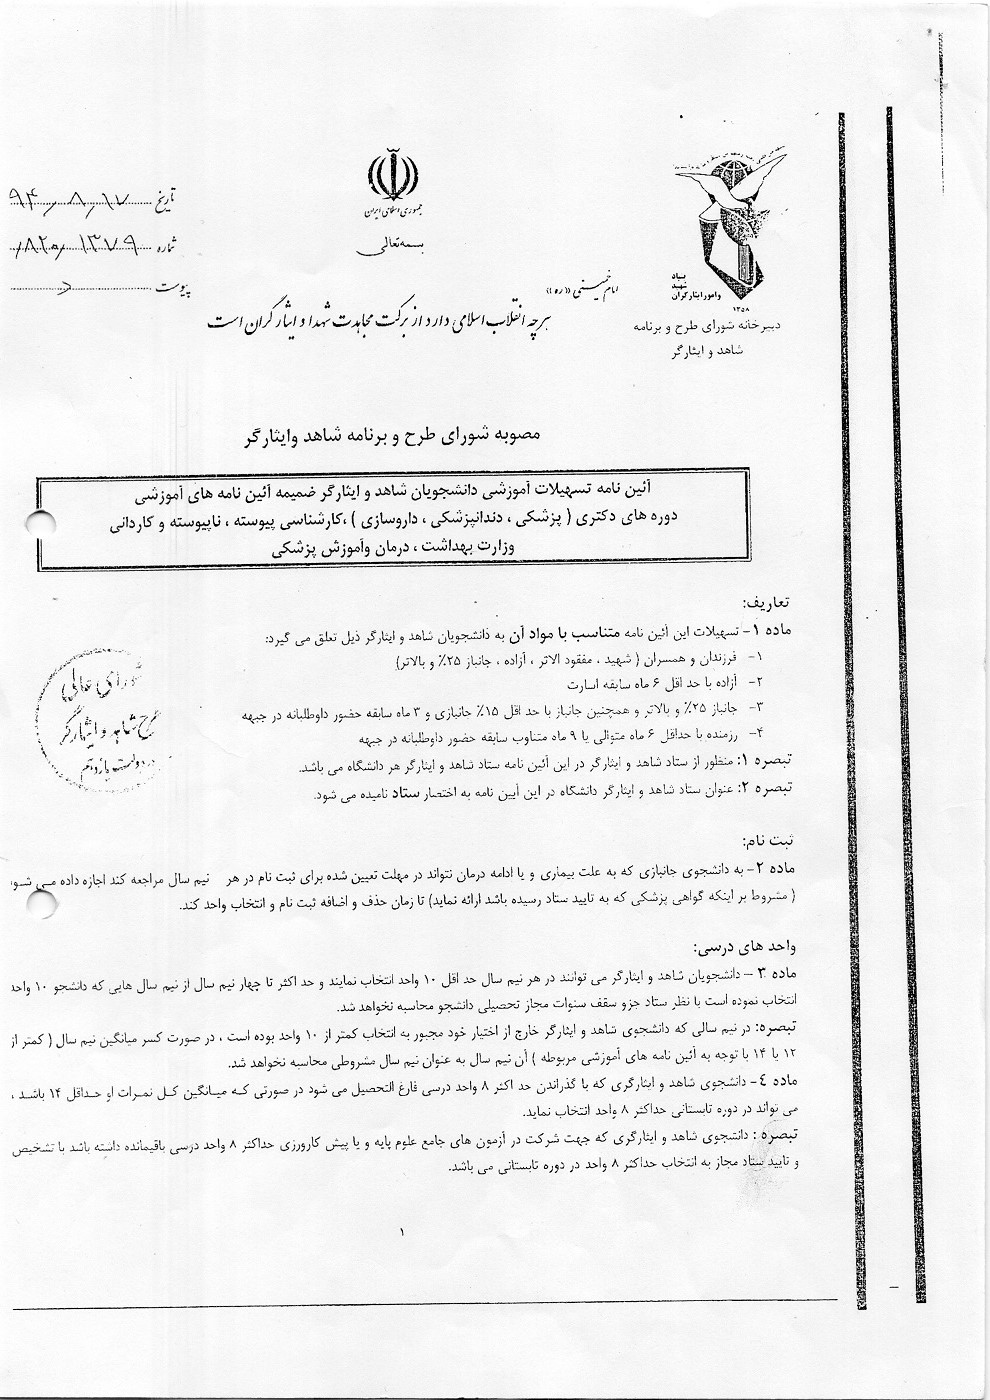 جمهوری اسلامی ایران
بسمه تعالی
تاریخ ۹۴/۸/۱۷
شماره ۸۲۰/۱۳۷۹/
پیوست
بنیاد
شهید
وامور ایثارگران
۱۳۵۸
دبیرخانه شورای طرح و برنامه
شاهد و ایثارگر
امام خمینی «ره»
هرچه انقلاب اسلامی دارد از برکت مجاهدت شهدا و ایثارگران است
مصوبه شورای طرح و برنامه شاهد وایثارگر
آئین نامه تسهیلات آموزشی دانشجویان شاهد و ایثارگر ضمیمه آئین نامه های آموزشی
دوره های دکتری ( پزشکی ، دندانپزشکی ، داروسازی ) ،کارشناسی پیوسته ، ناپیوسته و کاردانی
وزارت بهداشت ، درمان وآموزش پزشکی
تعاریف:
ماده ۱- تسهیلات این آئین نامه متناسب با مواد آن به دانشجویان شاهد و ایثارگر ذیل تعلق می گیرد:
۱- فرزندان و همسران ( شهید ، مفقود الاثر ، آزاده ، جانباز ۲۵٪ و بالاتر)
۲- آزاده با حد اقل ۶ ماه سابقه اسارت
۳- جانباز ۲۵٪ و بالاتر و همچنین جانباز با حد اقل ۱۵٪ جانبازی و ۳ ماه سابقه حضور داوطلبانه در جبهه
۴- رزمنده با حداقل ۶ ماه متوالی یا ۹ ماه متناوب سابقه حضور داوطلبانه در جبهه
تبصره ۱: منظور از ستاد شاهد و ایثارگر در این آئین نامه ستاد شاهد و ایثارگر هر دانشگاه می باشد.
تبصره ۲: عنوان ستاد شاهد و ایثارگر دانشگاه در این آیین نامه به اختصار ستاد نامیده می شود.
شورای عالی
طرح شاهد و ایثارگر
ثبت نام:
ماده ۲- به دانشجوی جانبازی که به علت بیماری و یا ادامه درمان نتواند در مهلت تعیین شده برای ثبت نام در هر نیم سال مراجعه کند اجازه داده می شود
( مشروط بر اینکه گواهی پزشکی که به تایید ستاد رسیده باشد ارائه نماید) تا زمان حذف و اضافه ثبت نام و انتخاب واحد کند.
واحد های درسی:
ماده ۳ – دانشجویان شاهد و ایثارگر می توانند در هر نیم سال حد اقل ۱۰ واحد انتخاب نمایند و حد اکثر تا چهار نیم سال از نیم سال هایی که دانشجو ۱۰ واحد
انتخاب نموده است با نظر ستاد جزو سقف سنوات مجاز تحصیلی دانشجو محاسبه نخواهد شد.
تبصره: در نیم سالی که دانشجوی شاهد و ایثارگر خارج از اختیار خود مجبور به انتخاب کمتر از ۱۰ واحد بوده است ، در صورت کسر میانگین نیم سال ( کمتر از
۱۲ یا ۱۴ با توجه به آئین نامه های آموزشی مربوطه ) آن نیم سال به عنوان نیم سال مشروطی محاسبه نخواهد شد.
ماده ٤- دانشجوی شاهد و ایثارگری که با گذراندن حد اکثر ۸ واحد درسی فارغ التحصیل می شود در صورتی که میانگین کل نمرات او حداقل ۱۴ باشد ،
می تواند در دوره تابستانی حداکثر ۸ واحد انتخاب نماید.
تبصره : دانشجوی شاهد و ایثارگری که جهت شرکت در آزمون های جامع علوم پایه و یا پیش کارورزی حداکثر ۸ واحد درسی باقیمانده داشته باشد با تشخیص
و تایید ستاد مجاز به انتخاب حداکثر ۸ واحد در دوره تابستانی می باشد.
۱